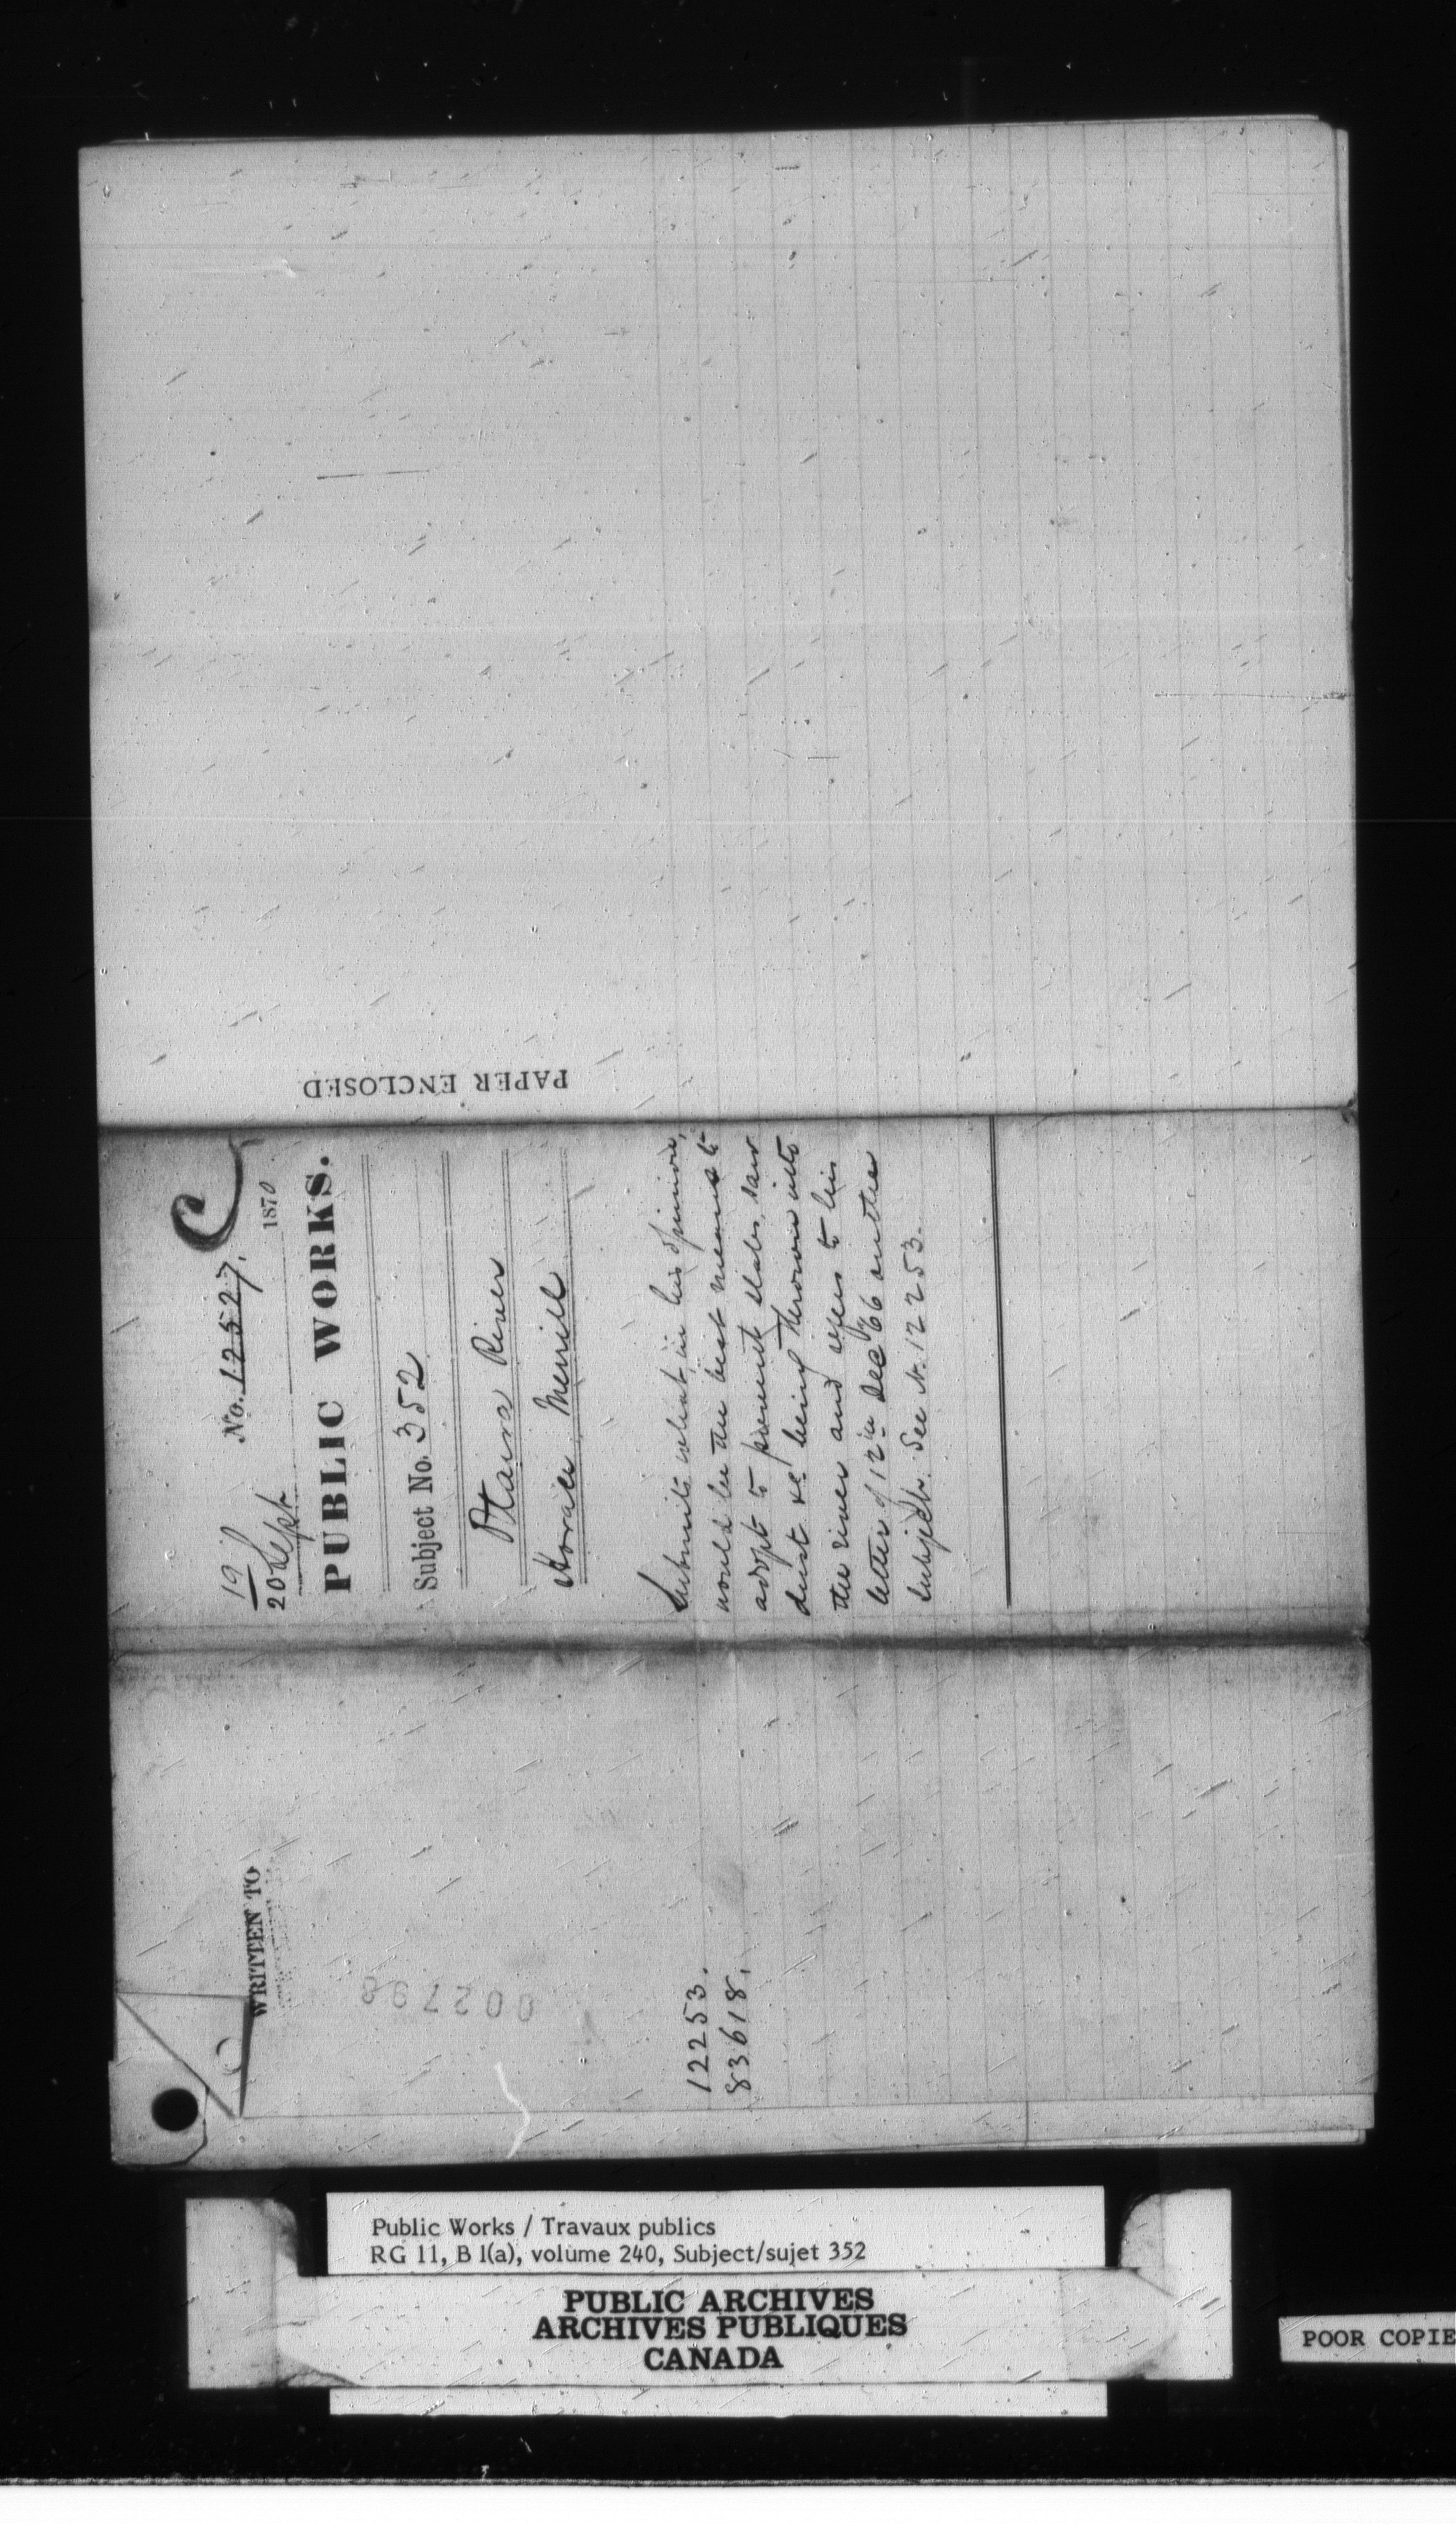 PAPER ENCLOSED
C
19 No. 12527.
20 Sept 1870
PUBLIC WORKS.
Subject No. 352
Ottawa River
Horace Merrill
Submits what in his opinion,
would be the best means to
adopt to prevent slabs, saw
dust &c being thrown into
the river and refers to his
letter of 12th Dec '66 on the
subject. See No. 12253.
WRITTEN TO
002798
12253.
83618.
Public Works / Travaux publics
RG 11, B 1(a), volume 240, Subject/sujet 352
PUBLIC ARCHIVES
ARCHIVES PUBLIQUES
CANADA
POOR COPIE